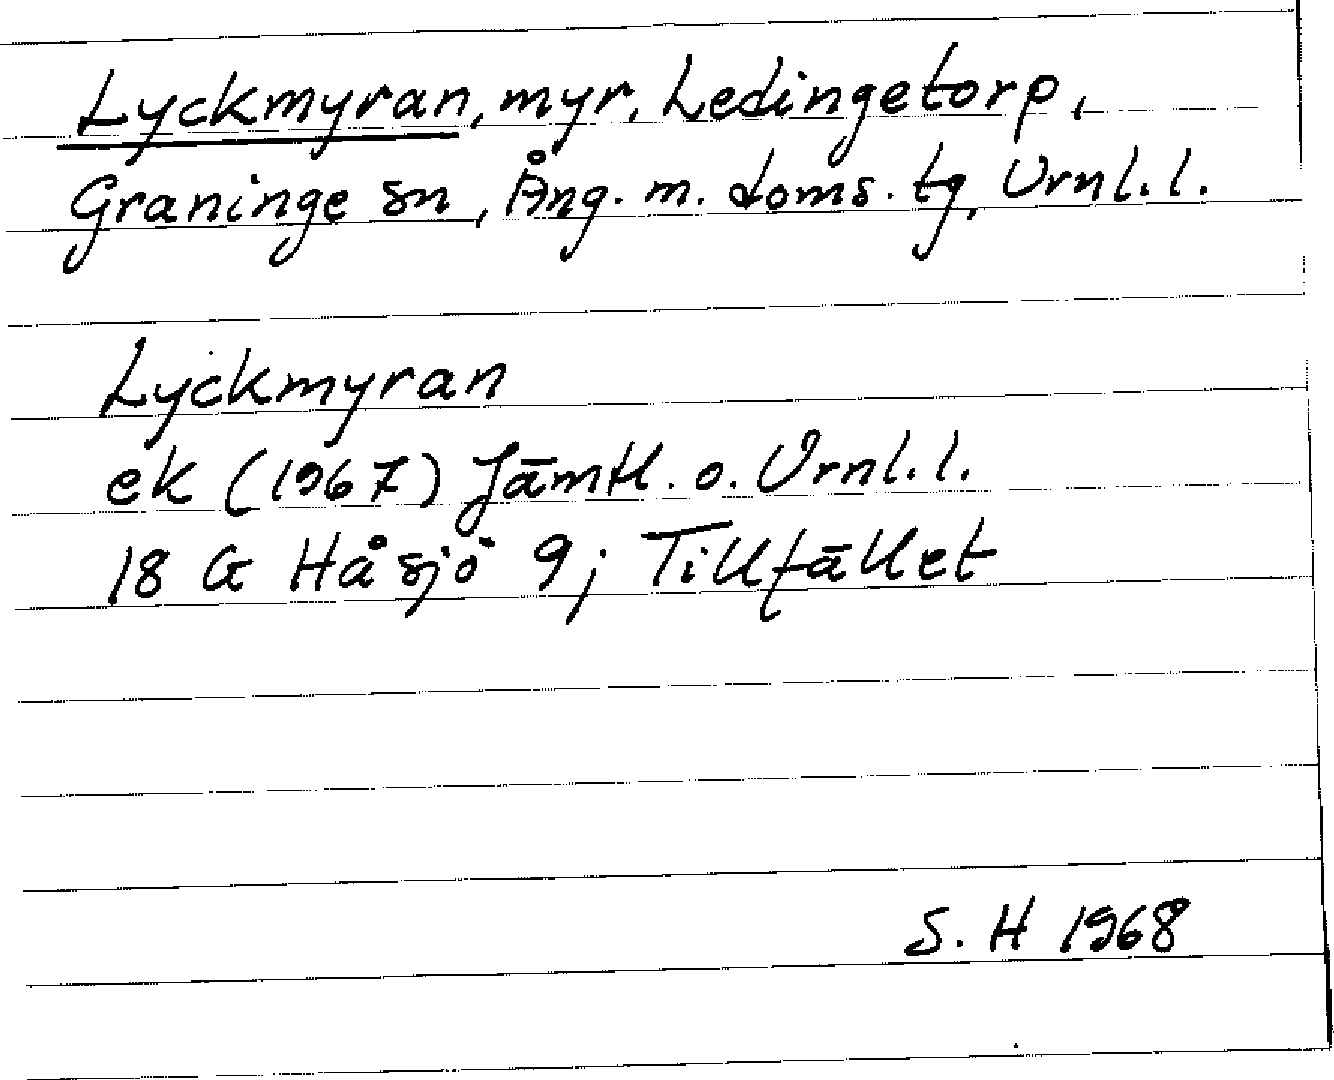 Lyckmyran, myr, Ledingetorp,
Graninge sn, Ång. m. doms. tg, Vrnl. l.
Lyckmyran
ek (1967) Jämtl. o. Vrnl. l.
18 G Håsjö 9; Tillfället
S. H 1968